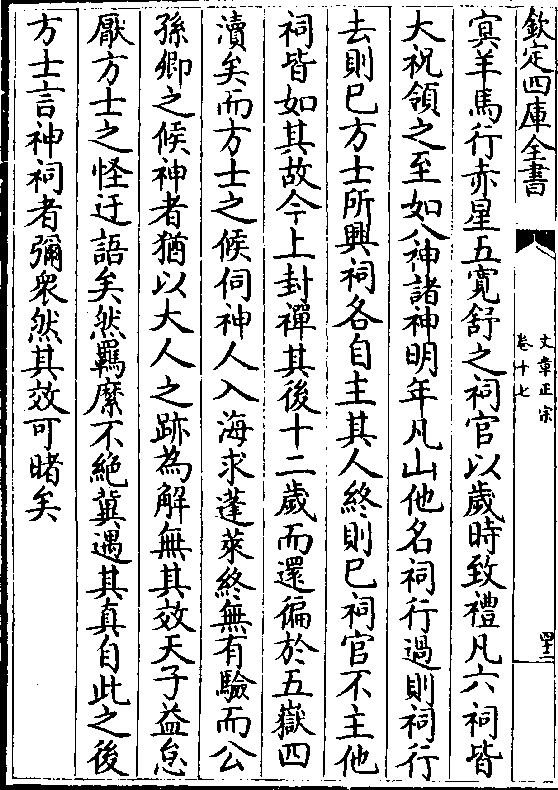 欽定四庫全書
文章正宗
卷十七
㝠羊馬行赤星五寛舒之祠官以歲時致禮凡六祠皆
大祝領之至如八神諸神明年凡山他名祠行過則祠行
去則已方士所興祠各自主其人終則已祠官不主他
祠皆如其故今上封禪其後十二歲而還徧於五嶽四
瀆矣而方士之候伺神人入海求蓬萊終無有驗而公
孫卿之候神者猶以大人之跡為解無其效天子益怠
厭方士之怪迂語矣然羈縻不絶冀遇其真自此之後
方士言神祠者彌衆然其效可睹矣